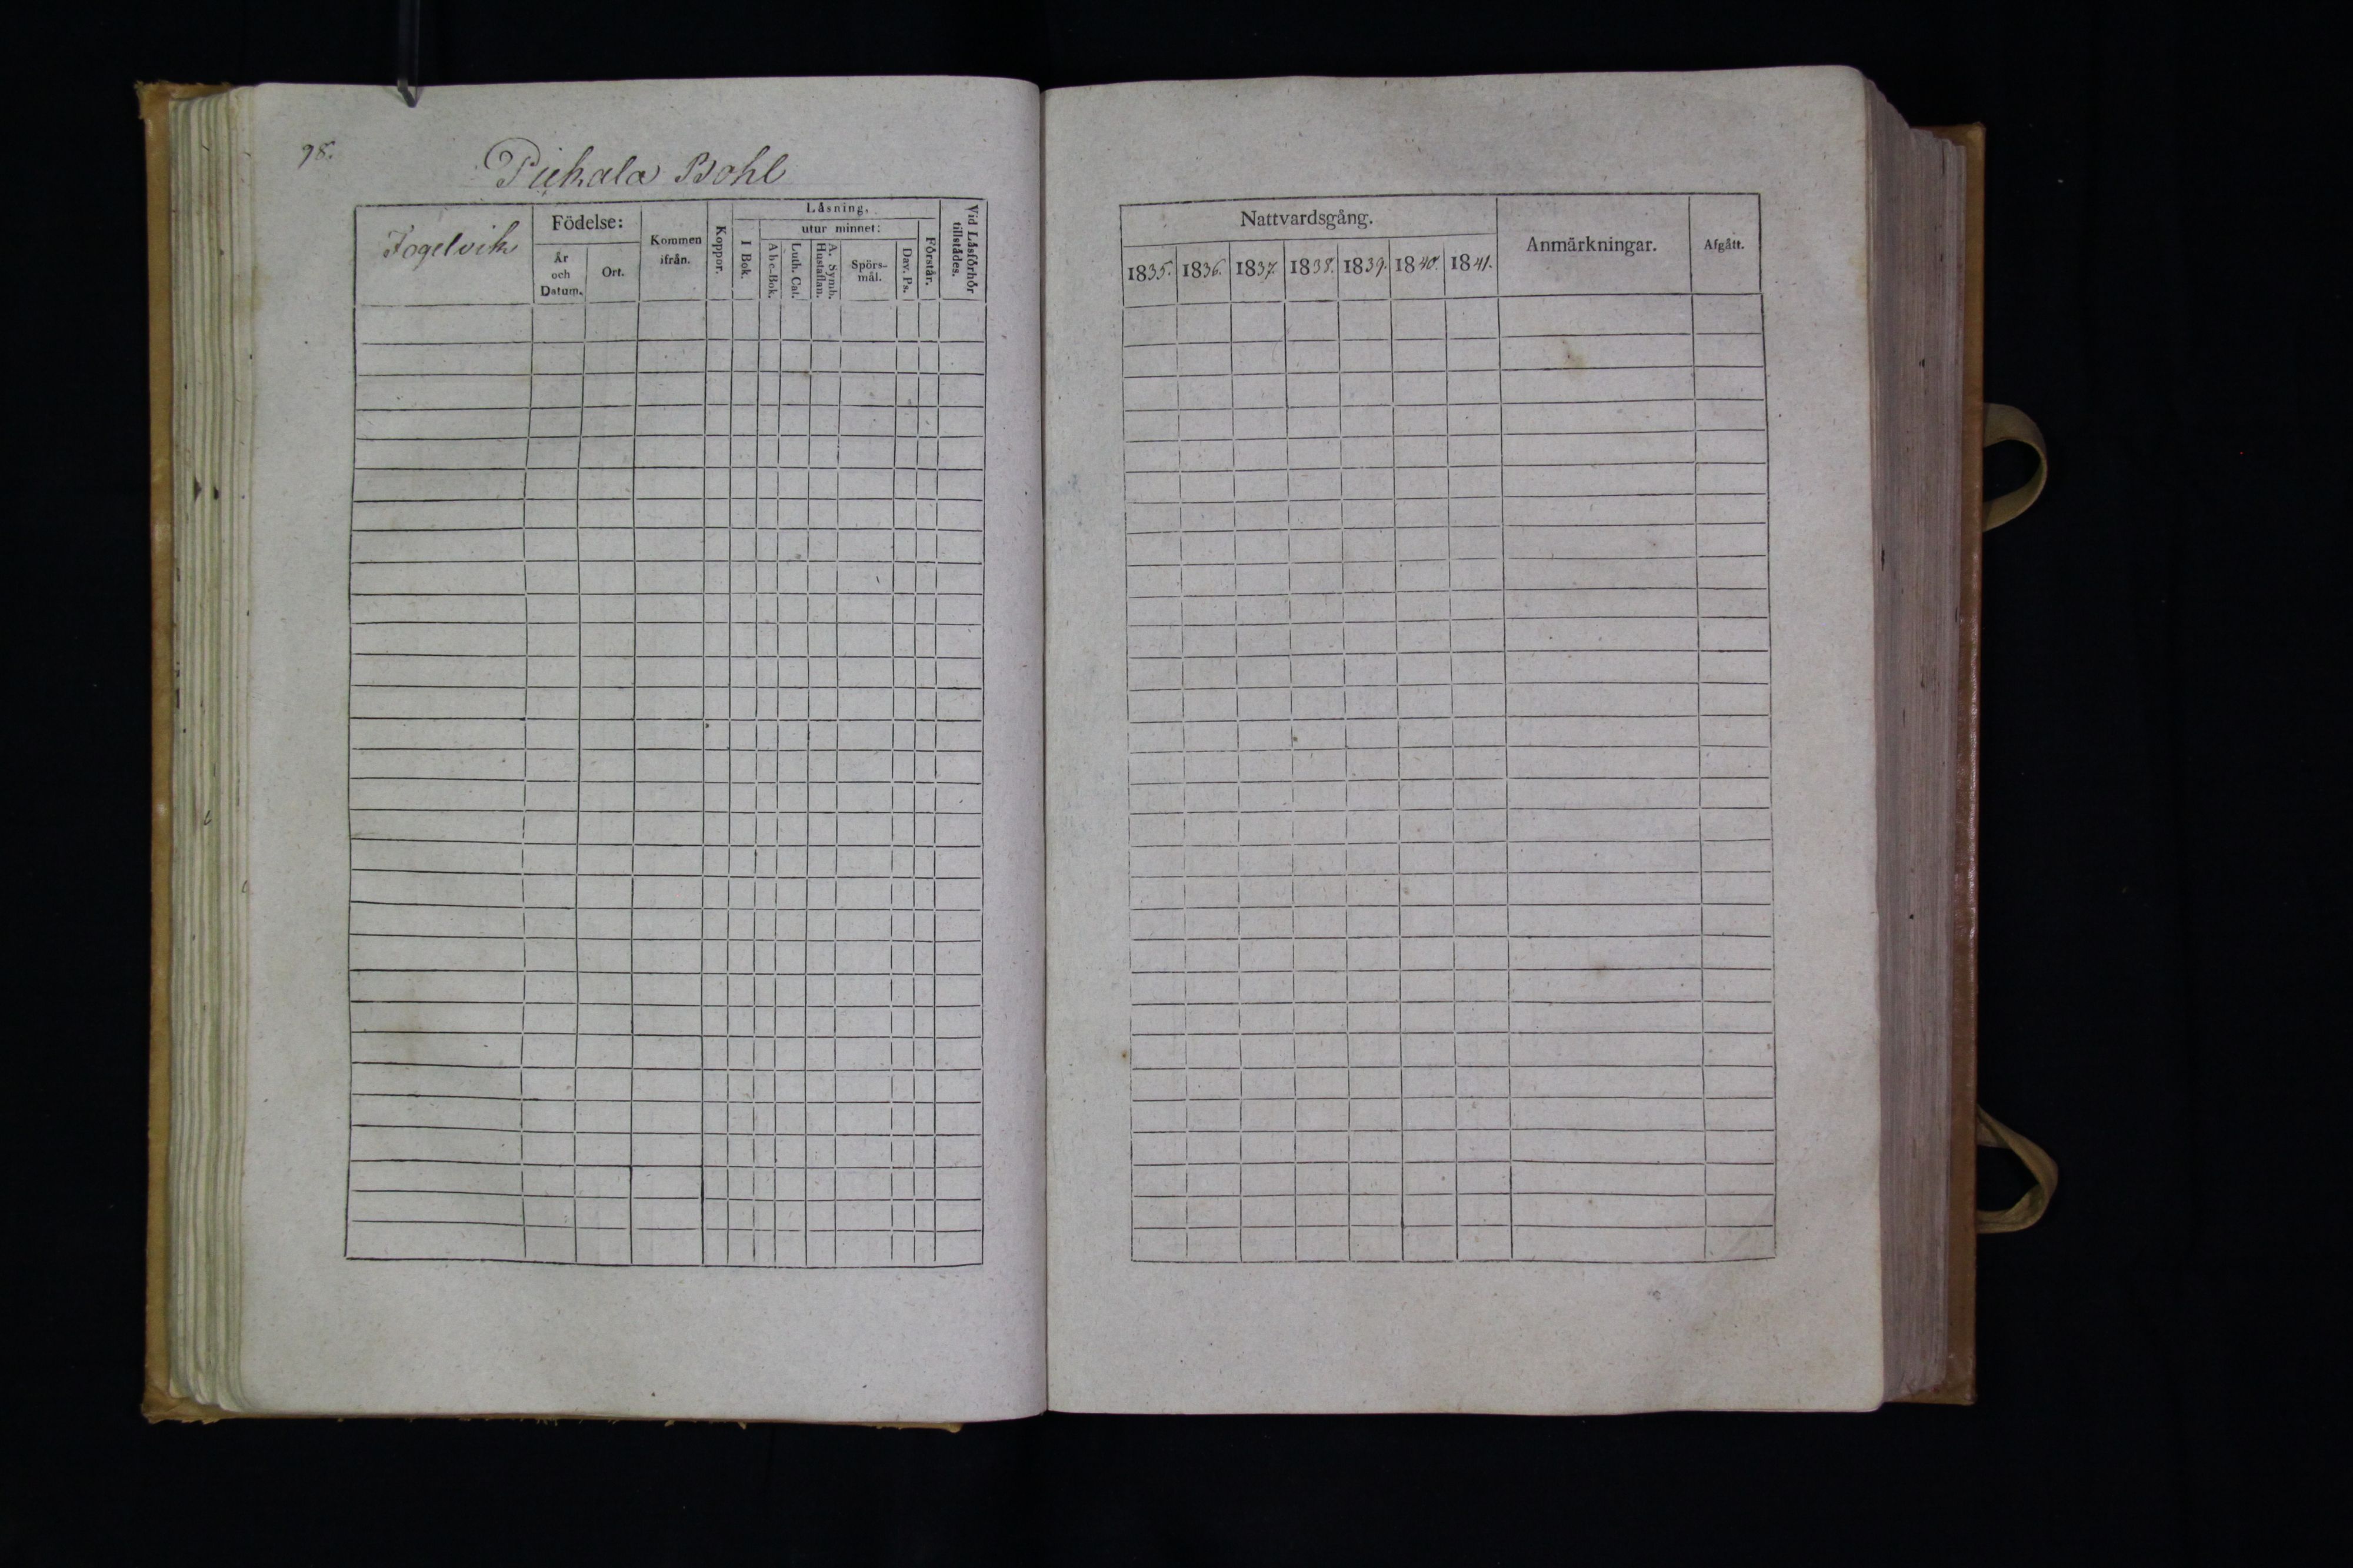 98.
Piikala Bohl
Fogelvik
Födelse:
År och Datum.
Ort.
Kommen ifrån.
Koppor.
Läsning,
I Bok.
utur minnet:
Abc-Bok.
Luth. Cat.
A. Symb. Hustaflan.
Spörs-
mål.
Dav. Ps.
Förstår.
Vid Läsförhör tillstädes.
Nattvardsgång.
1835. 1836. 1837. 1838. 1839. 1840. 1841.
Anmärkningar.
Afgått.